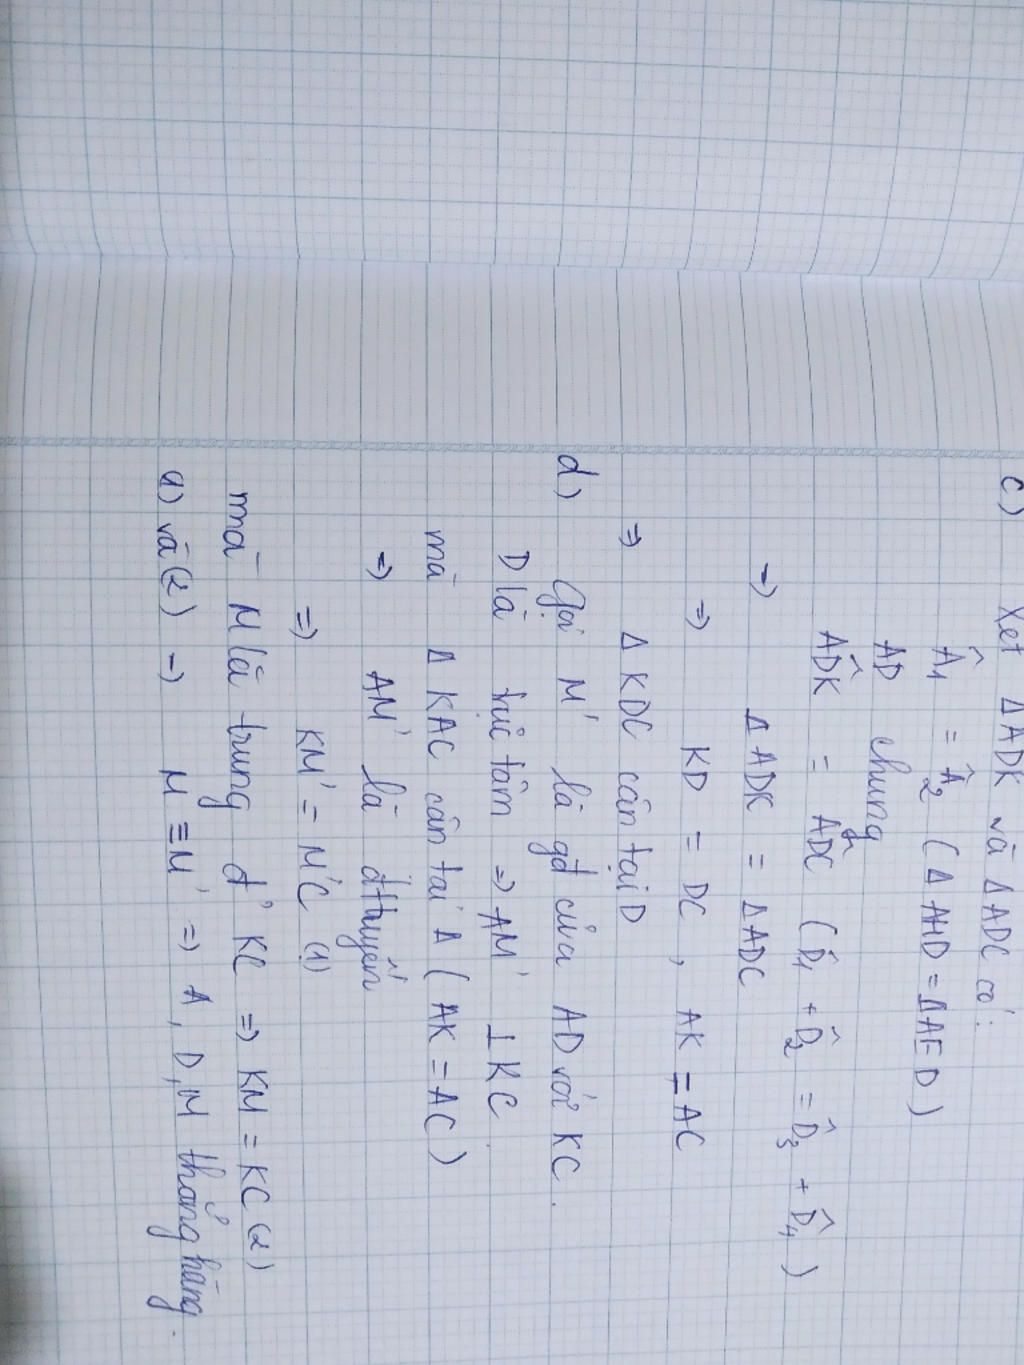 c) Xét Δ ADK và Δ ADC có:
Â₁ = Â₂ ( Δ AHD = Δ AED )
AD chung
ADK̂ = ADĈ ( D̂₁ + D̂₂ = D̂₃ + D̂₄ )
→ Δ ADK = Δ ADC
⇒ KD = DC , AK = AC
⇒ Δ KDC cân tại D
d) Gọi M' là gđ của AD với KC .
D là trực tâm ⇒ AM' ⊥ KC .
mà Δ KAC cân tai A ( AK = AC )
⇒ AM' là đttuyến
⇒ KM' = M'C (1)
mà M là trung đ' KC ⇒ KM = KC (2)
(1) và (2) → M ≡ M' ⇒ A , D , M thẳng hàng .